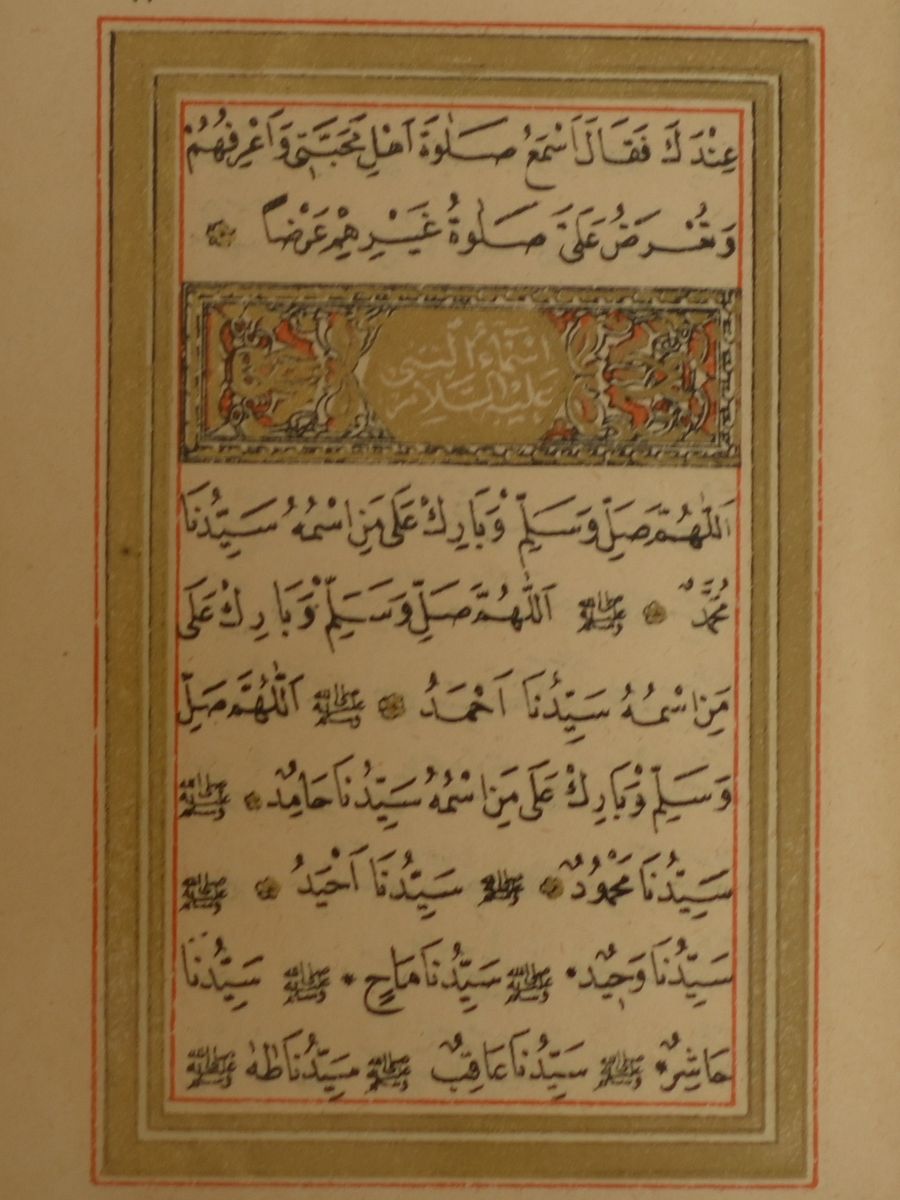 عِنْدَكَ فَقَالَ اَسْمَعُ صَلٰوةَ اَهْلِ مَحَبَّتِي وَاَعْرِفُهُمْ
وَتُعْرَضُ عَلَيَّ صَلٰوةُ غَيْرِهِمْ عَرْضًا
اَسْمَاءُ النَّبِي
عَلَيْهِ السَّلَامُ
اَللّٰهُمَّ صَلِّ وَسَلِّمْ وَبَارِكْ عَلٰى مَنِ اسْمُهُ سَيِّدُنَا
مُحَمَّدٌ ﷺ اَللّٰهُمَّ صَلِّ وَسَلِّمْ وَبَارِكْ عَلٰى
مَنِ اسْمُهُ سَيِّدُنَا اَحْمَدُ ﷺ اَللّٰهُمَّ صَلِّ
وَسَلِّمْ وَبَارِكْ عَلٰى مَنِ اسْمُهُ سَيِّدُنَا حَامِدٌ ﷺ
سَيِّدُنَا مَحْمُودٌ ﷺ سَيِّدُنَا اَحْيَدُ ﷺ
سَيِّدُنَا وَحِيدٌ ﷺ سَيِّدُنَا مَاحٍ ﷺ سَيِّدُنَا
حَاشِرٌ ﷺ سَيِّدُنَا عَاقِبٌ ﷺ سَيِّدُنَا طٰهٰ ﷺ